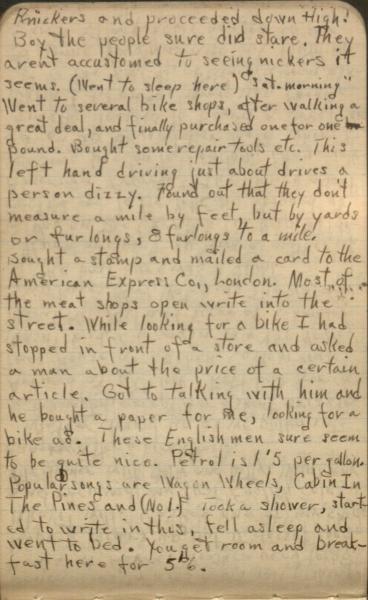 Knickers and proceeded down "High."
Boy the people sure did stare. They
arent accustomed to seeing nickers it
seems. (Went to sleep here) "Sat. morning"
Went to several bike shops, after walking a
great deal, and finally purchased one for one
pound. Bought some repair tools etc. This
left hand driving just about drives a
person dizzy. Found out that they don't
measure a mile by feet, but by yards
or furlongs, 8 furlongs to a mile.
Bought a stamp and mailed a card to the
American Express Co., London. Most of
the meat shops open write into the
street. While looking for a bike I had
stopped in front of a store and asked
a man about the price of a certain
article. Got to talking with him and
he bought a paper for me, looking for a
bike ad. These Englishmen sure seem
to be quite nice. Petrol is 1'5 per gallon.
Popular songs are Wagon Wheels, Cabin In
The Pines and (No1.) Took a shower, start-
ed to write in this, fell asleep and
went to bed. You get room and break-
fast here for 5'6.